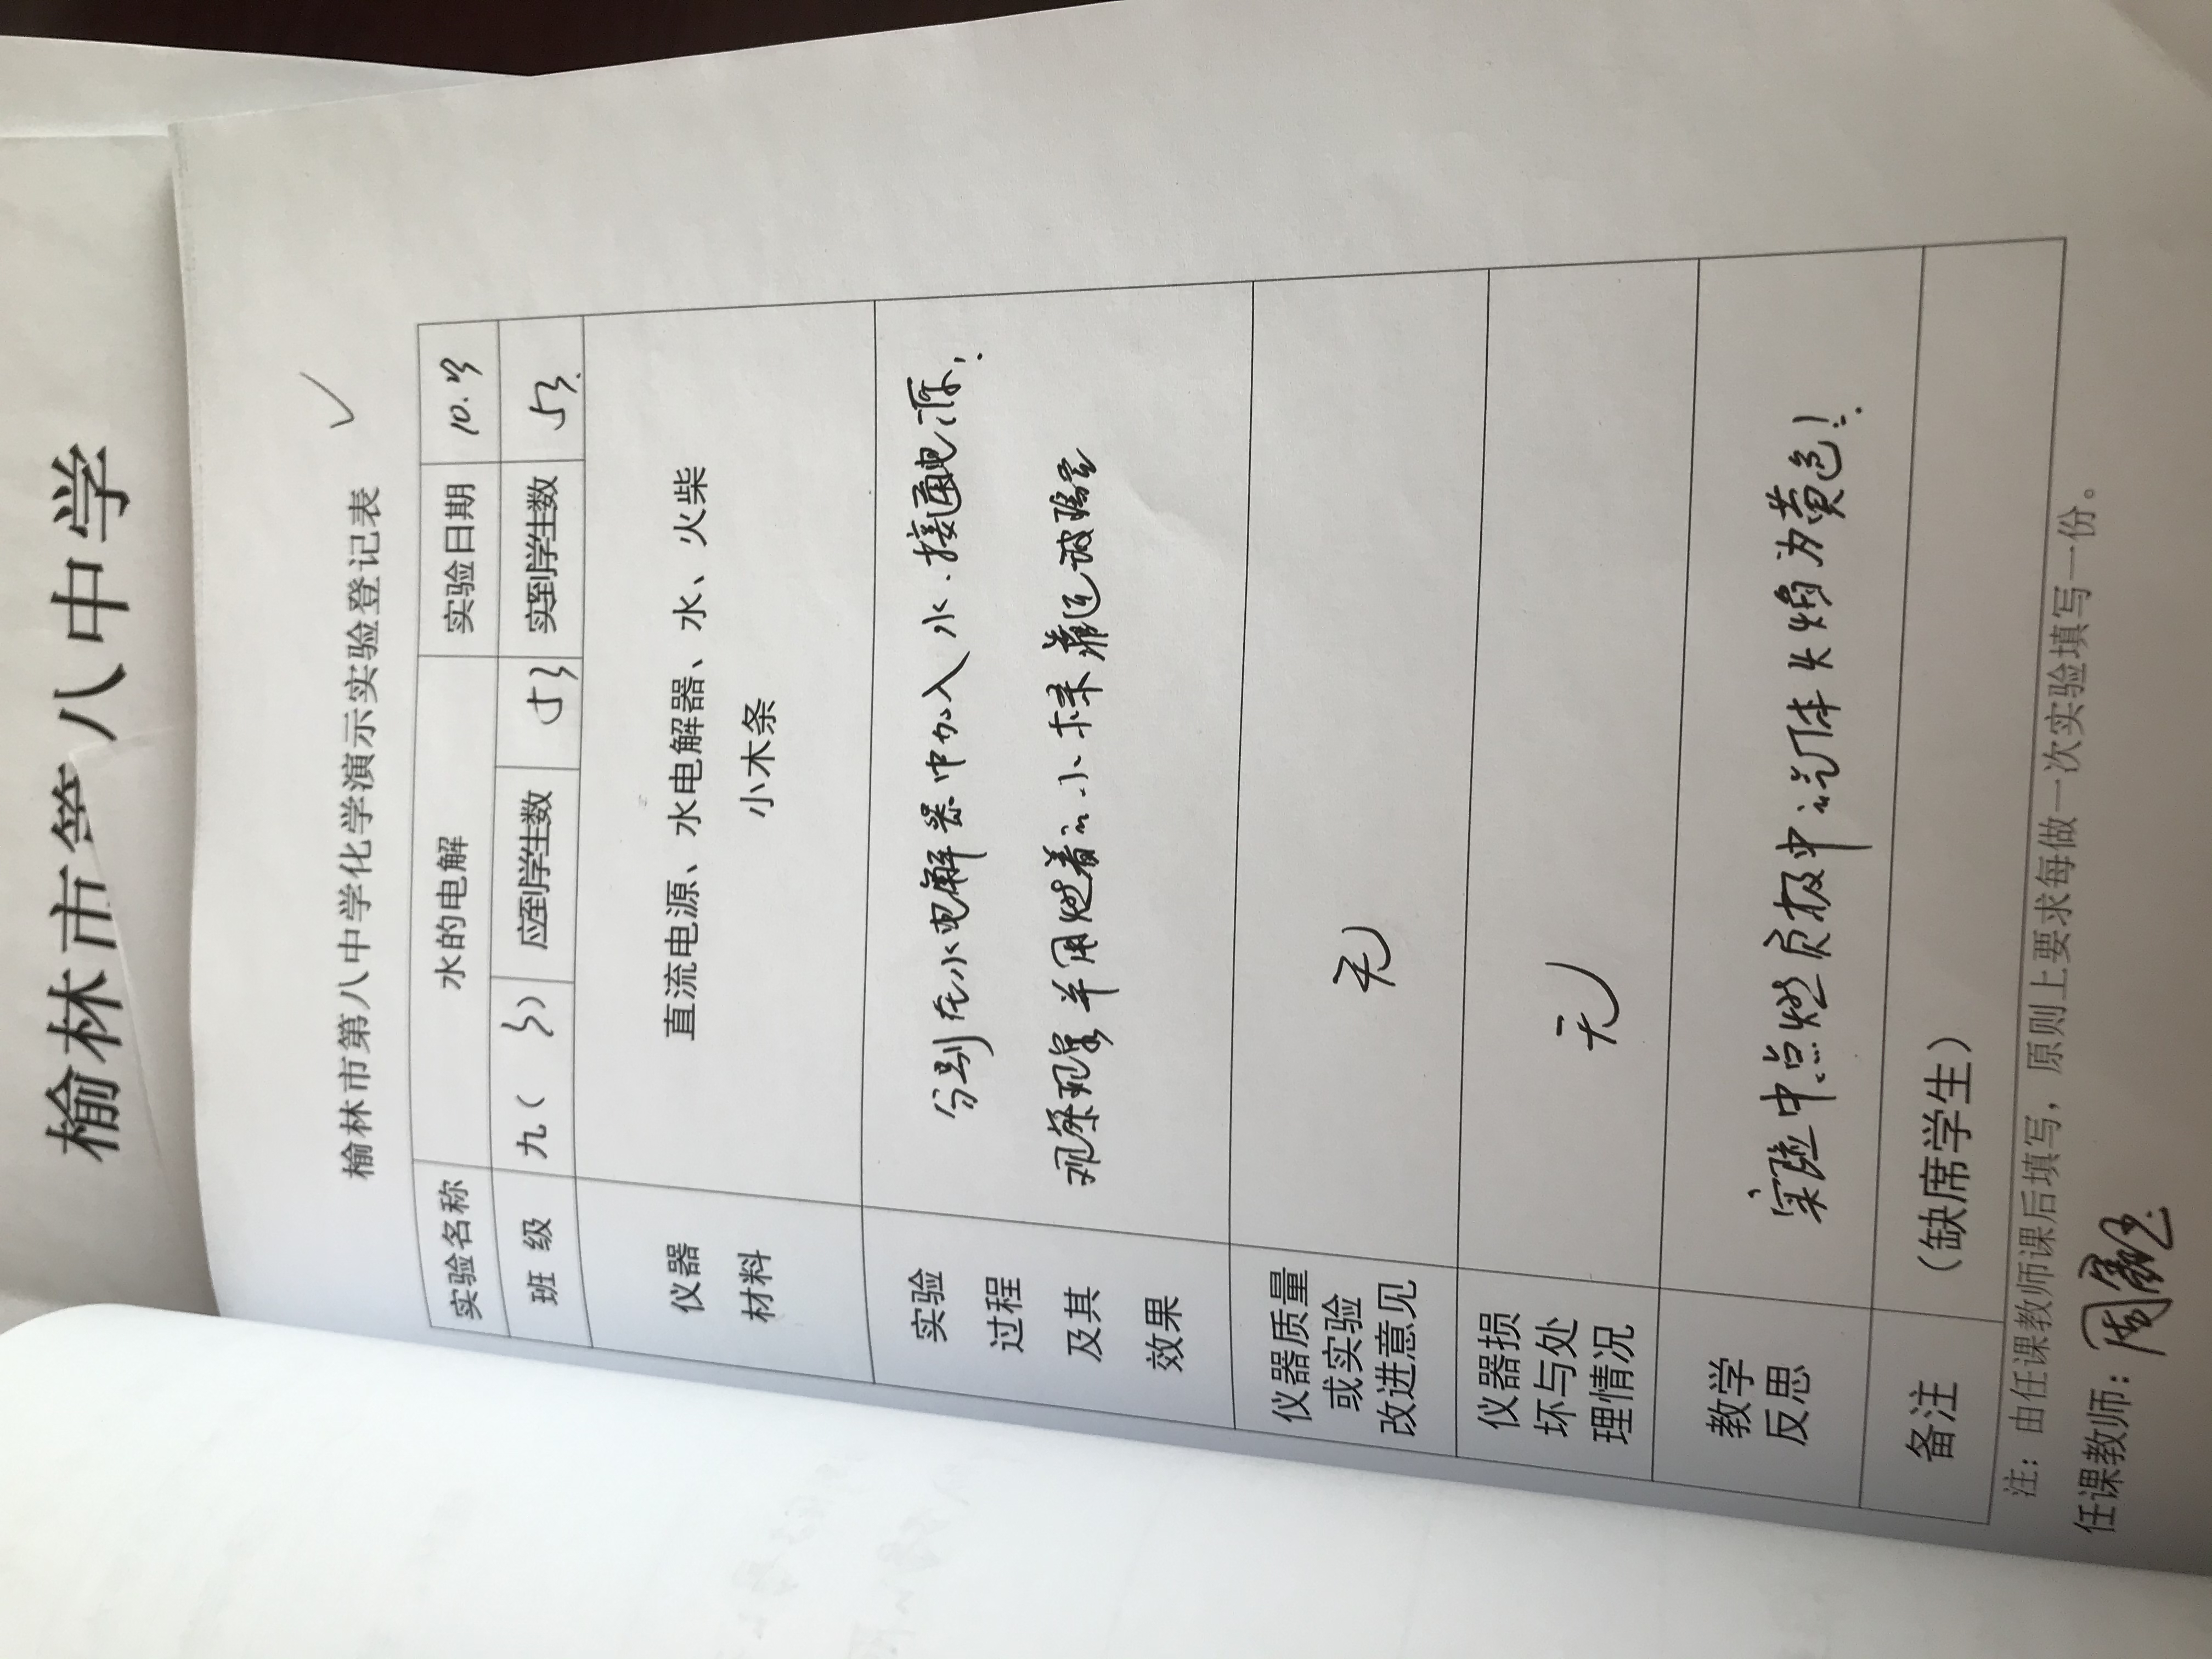 榆林市第八中学
榆林市第八中学化学演示实验登记表
实验名称 水的电解 实验日期
班 级 九( 3 ) 应到学生数 53 实到学生数 53
仪器 直流电源、水电解器、水、火柴
材料 小木条
实验 分别在水电解器中加入水.接通电源,
过程 观察现象并用燃着的小木条靠近玻璃管
及其
效果
仪器质量
或实验 无
改进意见
仪器损
坏与处 无
理情况
教学 实验中点燃负极中的气体火焰为黄色!
反思
备注 (缺席学生)
注:由任课教师课后填写,原则上要求每做一次实验填写一份。
任课教师:周